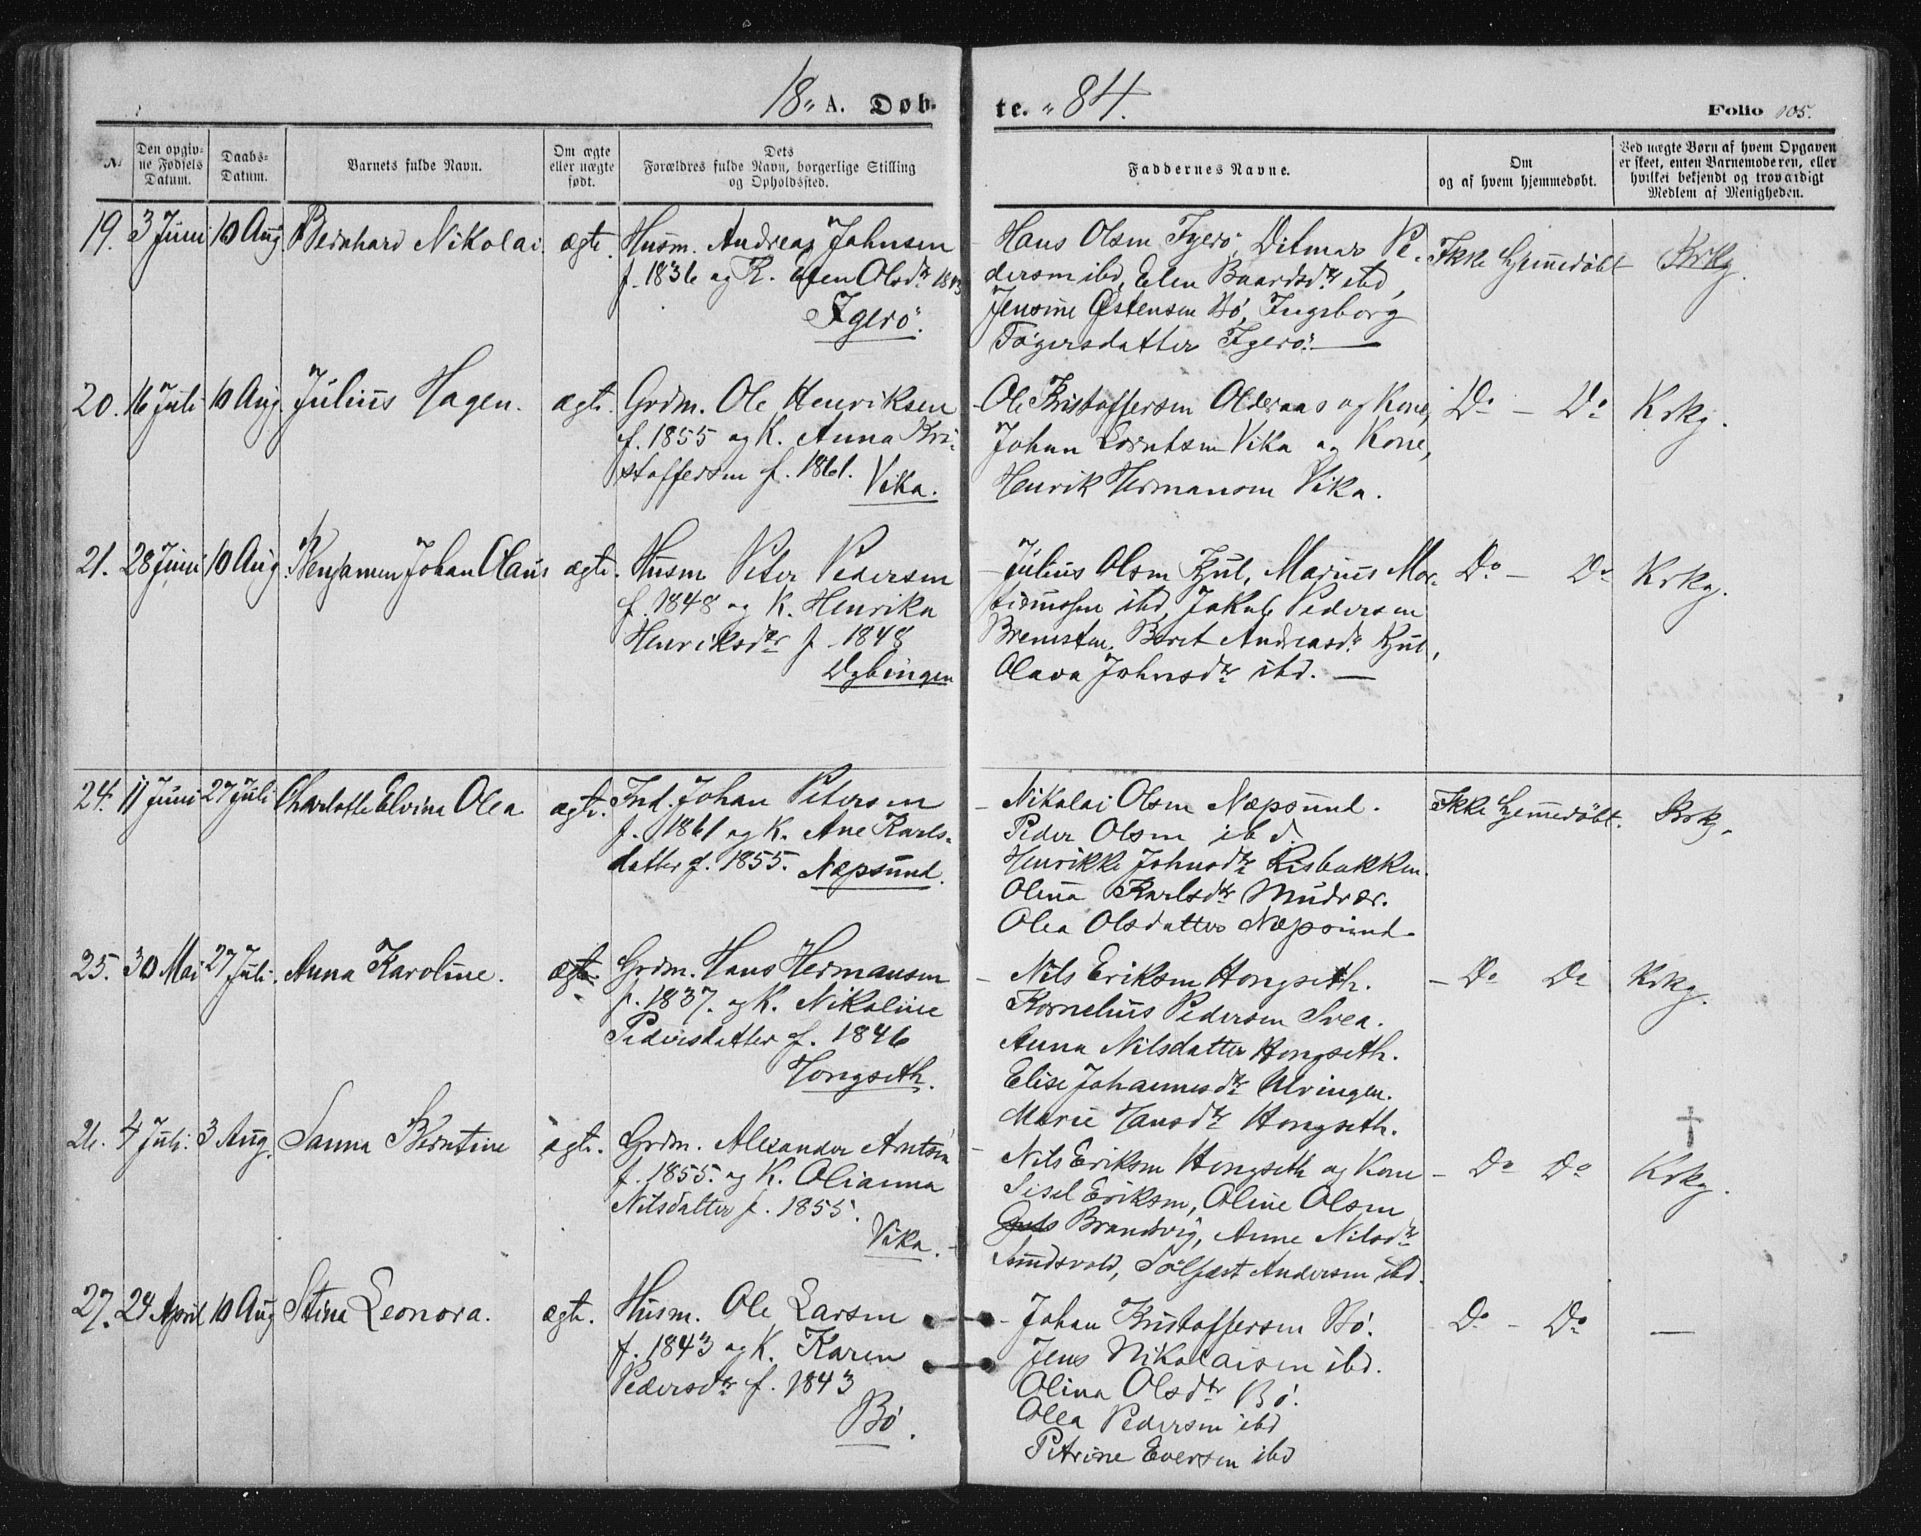 18 " A. Døb-
te. " 84.
Folio 105.
№
Den opgiv-
ne Fødsels
Datum.
Daabs-
Datum.
Barnets fulde Navn.
Om ægte
eller uægte
født.
Dets
Forældres fulde Navn, borgerlige Stilling
og Opholdssted.
Faddernes Navne.
Om
og af hvem hjemmedøbt.
Ved uægte Børn af hvem Opgaven
er skeet, enten Barnemoderen, eller
hvilket bekjendt og troværdigt
Medlem af Menigheden.
19. 3 Juni 10 Aug Bernhard Nikolai. ægte.
Husm. Andreas Johnsen
f. 1836 og K. Elen Olsdr 1843
Igerø.
Hans Olsen Igerø, Ditmar Pe-
dersen ibd, Elen Baardsdtr ibd,
Jensine Østensen Bø, Ingeborg
Tøgersdatter Igerø. —
Ikke hjemmedøbt Krkg.
20. 16 Juli 10 Aug. Julius Hagen. ægte.
Grdm. Ole Henriksen
f. 1855 og K. Anna Kri-
stoffersen f. 1861.
Vika.
Ole Kristoffersen Olderaas og Kone,
Johan Lorntsen Vika og Kone,
Henrik Hermansen Vika.
Do — Do Krkg.
21. 28 Juni 10 Aug. Benjamen Johan Olaus ægte.
Husm Peter Pedersen
f. 1848 og K. Henrika
Henriksdtr f. 1848
Dybingen
Julius Olsen Kjul, Marius Mor-
ibd, Jakob Pedersen
Bremsten, Beret Andreasdr Kjul,
Olava Johnsdtr ibd. —
Do — Do Krkg.
24. 11 Juni 27 Juli Charlotte Elvina Olea ægte.
Ind. Johan Petersen
f. 1861 og K. Ane Karls-
datter f. 1855. Næpsund.
— Nikolai Olsen Næpsund.
Peder Olsen ibd.
Henrikke Johnsdtr Risbakken.
Olina Karlsdtr Mudvær.
Olea Olsdatter Næpsund.
Ikke hjemmedøbt. Krkg.
25. 30 Mai 27 Juli. Anna Karoline. ægte.
Grdm. Hans Hermansen
f. 1837. og K. Nikoline
Pedersdatter f. 1846
Hongseth.
— Nils Eriksen Hongseth.
Kornelius Pedersen Svea.
Anna Nilsdatter Hongseth.
Elise Johannesdtr Ulvingen.
Marie Hansdtr Hongseth.
— Do Do Krkg.
26. 4 Juli. 3 Aug. Sanna Berntine ægte.
Grdm. Alexander Arntsen
f. 1855. og K. Olianna
Nilsdatter f. 1855.
Vika.
— Nils Eriksen Hongseth og Kone
Sisel Eriksen, Oline Olsen
Brandvig, Anne Nilsdtr
Sundsvold, Solfæst Andersen ibd.
— Do Do Krkg. †
27. 24 April 10 Aug Stina Leonora. ægte.
Husm. Ole Larsen
f. 1843 og K. Karen
Pedersdtr f. 1843
Bø.
— Johan Kristoffersen Bø.
Jens Nikolaisen ibd.
Olina Olsdtr Bø.
Olea Pedersen ibd
Petrine Eversen ibd
Do — Do —